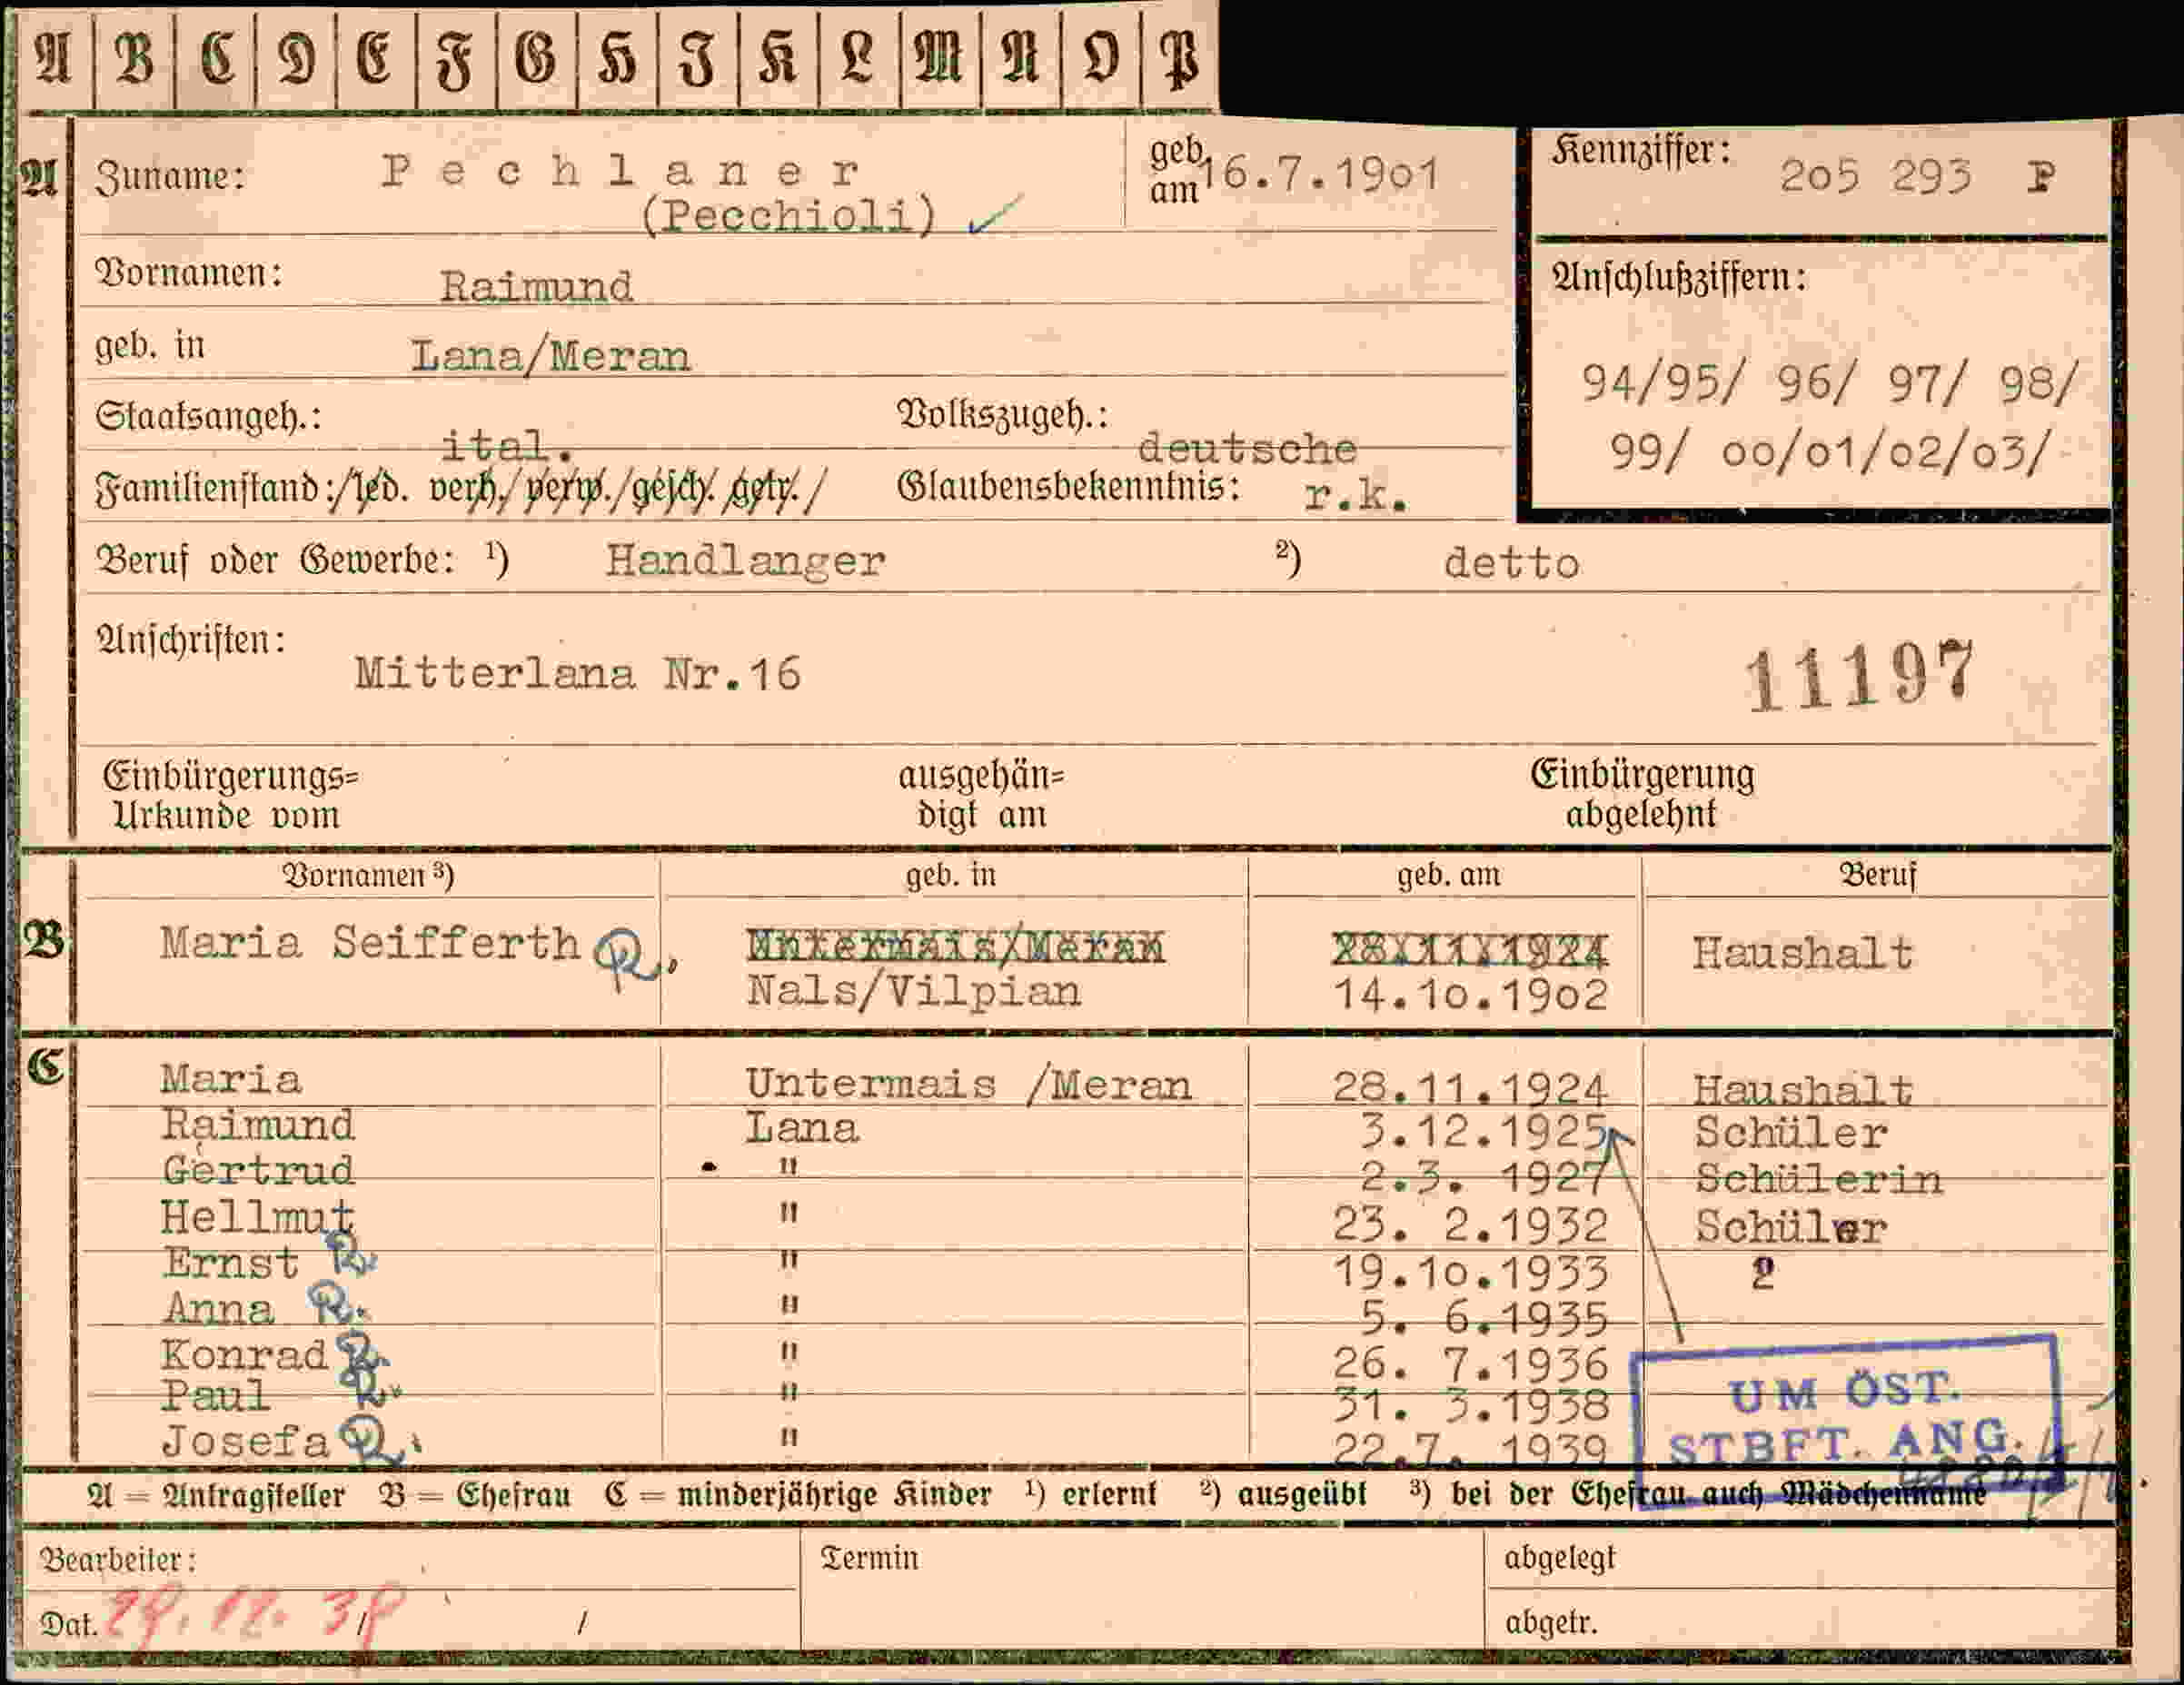 A B C D E F G H I K L M N O P
A Zuname: Pechlaner geb. am 16.7.1901 Kennziffer: 205 293 P
(Pecchioli) ✓
Vornamen: Raimund Anschlußziffern:
geb. in Lana/Meran 94/95/ 96/ 97/ 98/
Staatsangeh.: ital. Volkszugeh.: deutsche 99/ 00/01/02/03/
Familienstand:/led. verh./verw./gesch. getr./ Glaubensbekenntnis: r.k.
Beruf oder Gewerbe: ¹) Handlanger ²) detto
Anschriften:
Mitterlana Nr.16 11197
Einbürgerungs= ausgehän= Einbürgerung
Urkunde vom digt am abgelehnt
Vornamen ³) geb. in geb. am Beruf
B Maria Seifferth, Untermais/Meran 28.11.1924 Haushalt
Nals/Vilpian 14.10.1902
C Maria Untermais /Meran 28.11.1924 Haushalt
Raimund Lana 3.12.1925 Schüler
Gertrud " 2.3. 1927 Schülerin
Hellmut " 23. 2.1932 Schüler
Ernst " 19.10.1933 2
Anna " 5. 6.1935
Konrad " 26. 7.1936
Paul " 31. 3.1938
Josefa " 22.7. 1939
UM ÖST.
STBFT. ANG.
A = Antragsteller B = Ehefrau C = minderjährige Kinder ¹) erlernt ²) ausgeübt ³) bei der Ehefrau auch Mädchenname
Bearbeiter: Termin abgelegt
Dat. 29.12.39 / / abgetr.